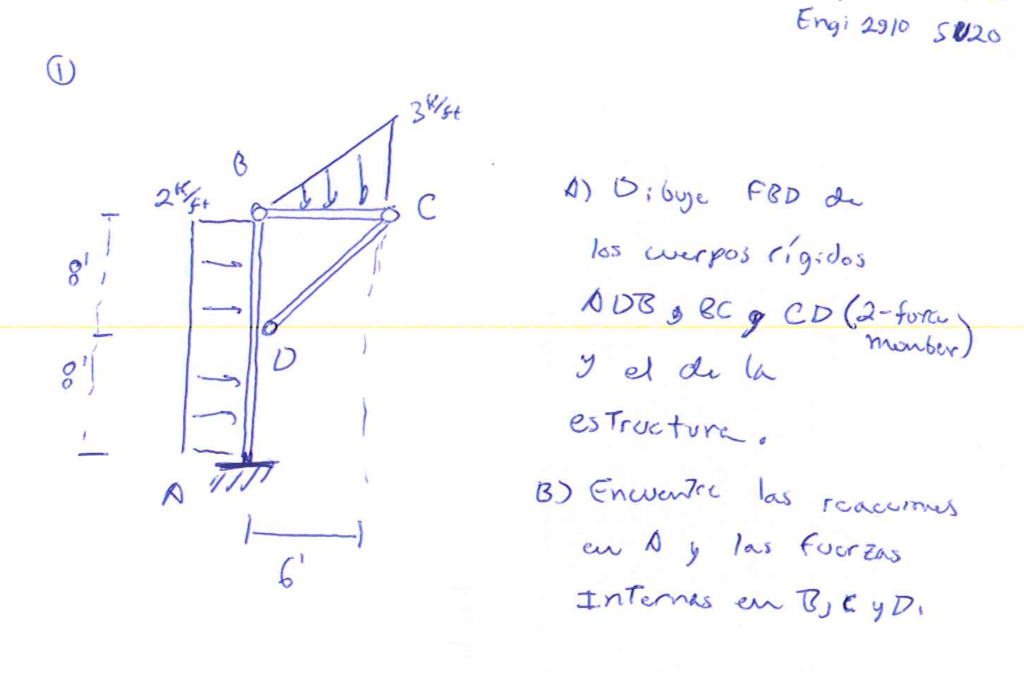 Engi 2910 SU20
①
3 K/ft
B
2 K/ft
C
8'
D
8'
A
6'
A) Dibuje FBD de
los cuerpos rígidos
ADB, BC y CD (2-force
member)
y el de la
estructura.
B) Encuentre las reacciones
en A y las fuerzas
Internas en B, C y D.